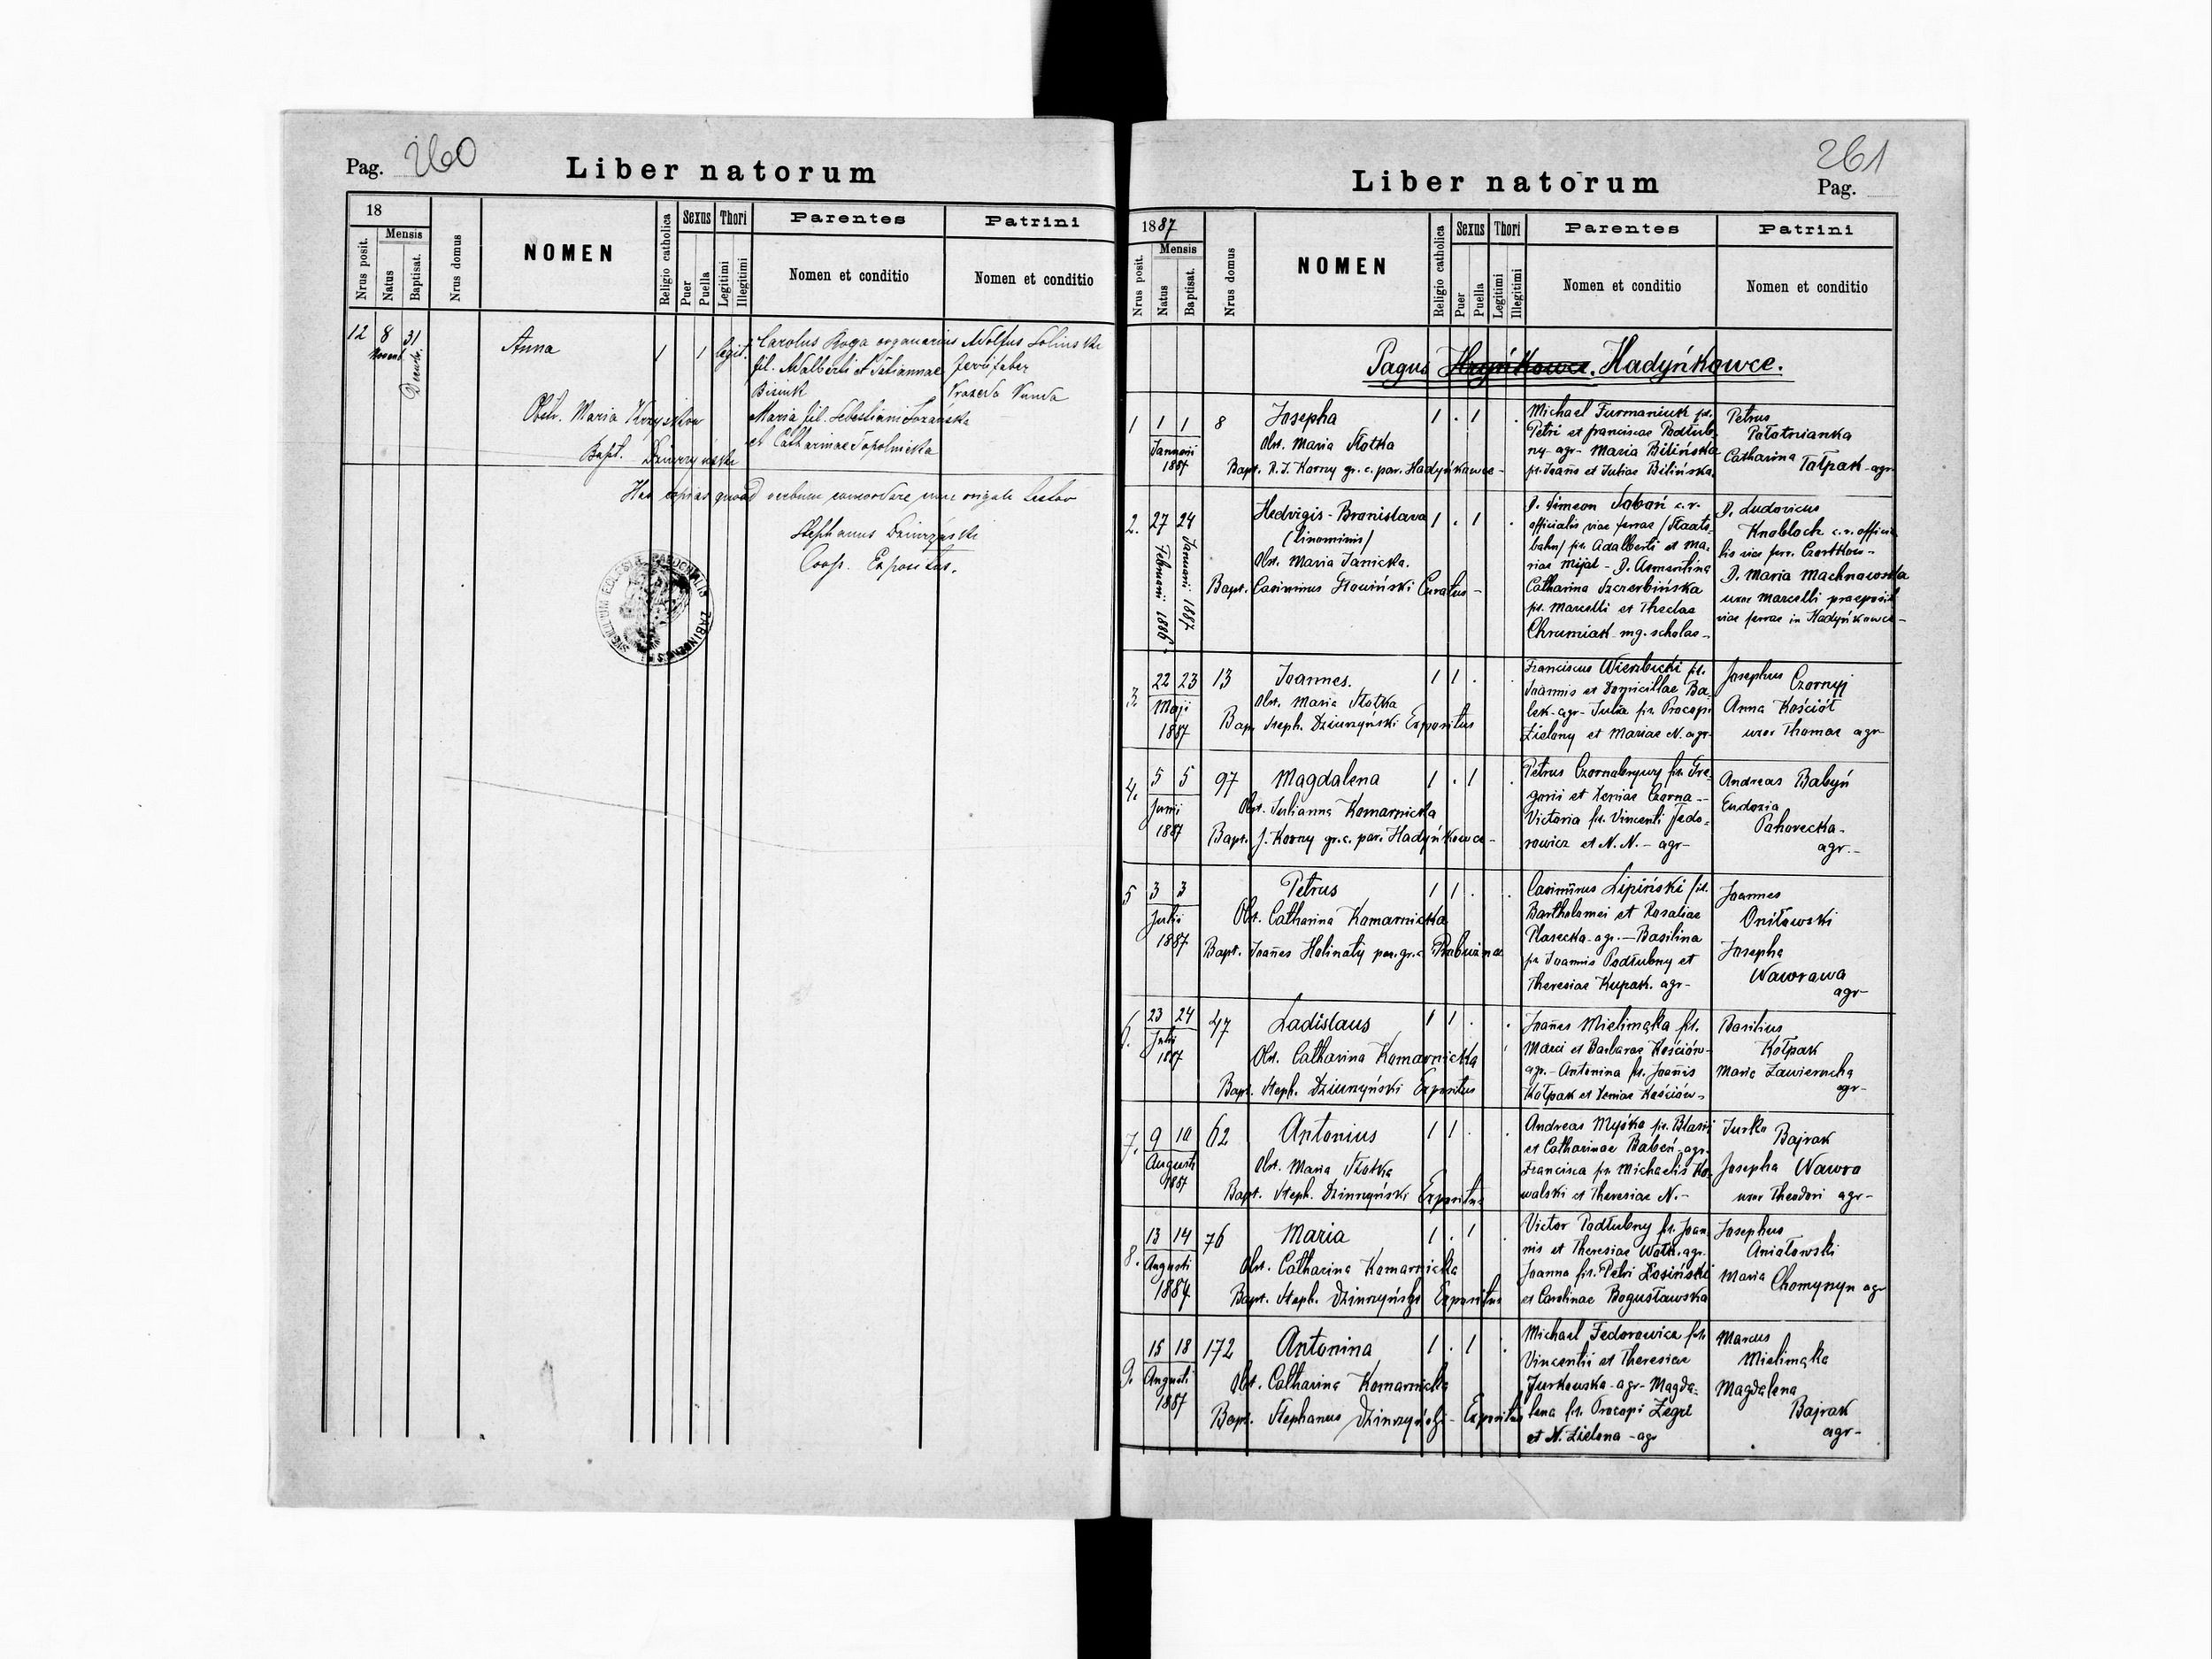 Pag. 260
Liber natorum
18
Nrus posit.
Mensis
Natus
Baptisat.
Nrus domus
NOMEN
Religio catholica
Sexus
Puer
Puella
Thori
Legitimi
Illegitimi
Parentes
Nomen et conditio
Patrini
Nomen et conditio
12 8 31
Decemb.
Anna
1 1 legit.
Carolus Roga organarius
fil. Adalberti et Tatiannae
Maria fil. Sebastiani
et Catharinae Topolnicka
Adolfus Solinski
faber
Obstr. Maria
Bapt. Dziurzyński
Has copias quoad verbum concordare cum testor
Stephanus Dziurzyński
Coop. Expositus.
261
Liber natorum
Pag.
1887
Nrus posit.
Mensis
Natus
Baptisat.
Nrus domus
NOMEN
Religio catholica
Sexus
Puer
Puella
Thori
Legitimi
Illegitimi
Parentes
Nomen et conditio
Patrini
Nomen et conditio
Pagus Hadyńkowce.
1 1 1
Januarii
1887
8
Josepha
Obst. Maria Słotka
Bapt. R. J. Korny gr. c. par. Hadyńkowce -
1 . 1 .
Michael Furmaniuk fil.
Petri et Franciscae Podłub-
ny - agr - Maria Bilińska
fil. Joañs et Juliae Bilińska.
Petrus
Połotnianka
Catharina Tołpak - agr-
2. 27 24
Februarii 1886.
Januarii 1887
Hedvigis - Bronislava
(binominis)
Obst. Maria Janicka.
Bapt. Casimirus Curatus -
1 . 1 .
D. Simeon Soboń c. r.
officialis viae ferrae /Staats-
bahn/ fil. Adalberti et Ma-
riae Mijal - D.
Catharina Szczerbińska
fil. Marcelli et Theclae
Chrumiak - mg. scholae -
D. Ludovicus
Knobloch c. r. officia
lis viae ferr. Czortków -
D. Maria Machnowska
uxor Marcelli praeposit
viae ferrae in Hadyńkowce -
3. 22 23
Maji
1887
13
Joannes.
Obst. Maria Słotka
Bap. Steph. Dziurzyński Expositus
1 1 . .
Franciscus Wierzbicki fil.
Joannis et Domicillae Ba-
lek - agr - Julia fil. Procopi
Zielony et Mariae N. agr-
Josephus Czornyj
Anna Kościół
uxor Thomae agr-
4. 5 5
Junii
1887
97
Magdalena
Obst. Julianna Komarnicka
Bapt. J. Korny gr. c. par. Hadyńkowce -
1 . 1 .
Petrus Czornobrywy fil. Gre-
gorii et Xeniae Czorna -
Victoria fil. Vincenti Fedo-
rowicz et N. N. - agr-
Andreas Babyń
Eudoxia
Pahorecka -
agr. -
5 3 3
Julii
1887
Petrus
Obst. Catharina Komarnicka
Bapt. Joañes Holinaty par. gr. c. Probużna
1 1 . .
Casimirus Lipiński fil.
Bartholomei et Rosaliae
Płasecka - agr. - Basilina
fil. Joannis Podłubny et
Theresiae Kupak. agr-
Joannes
Oniłowski
Josepha
Wawrowa
agr-
6. 23 24
Julii
1887
47
Ladislaus
Obst. Catharina Komarnicka
Bapt. Steph. Dziurzyński Expositus
1 1 . .
Joañes Mielimąka fil.
Marci et Barbarae Kościów-
agr. - Antonina fil. Joañis
Kołpak et Xeniae Kościów -
Basilius
Kołpak
Maria Zawierucha
agr-
7. 9 10
Augusti
1887
62
Antonius
Obst. Maria Słotka
Bapt. Steph. Dziurzyński Expositus
1 1 . .
Andreas Myśko fil. Blasii
et Catharinae Babeń - agr-
Francisca fil. Michaelis Ko-
walski et Theresiae N. -
Jurko Bajrak
Josepha Wawro
uxor Theodori agr-
8. 13 14
Augusti
1887
76
Maria
Obst. Catharina Komarnicka
Bapt. Steph. Dziurzyński Expositus
1 . 1 .
Victor Podłubny fil. Joan-
nis et Theresiae Wołk. agr.
Joanna fil. Petri Łosiński
et Carolinae Bogusławska
Josephus
Aniałowski
Maria Chomyszyn agr
9. 15 18
Augusti
1887
172
Antonina
Obst. Catharina Komarnicka
Bapt. Stephanus Dziurzyński - Expositus
1 . 1 .
Michael Fedorowicz fil.
Vincentii et Theresiae
Jurkowska - agr - Magda-
lena fil. Procopi Zegri
et N. Zielona - agr
Marcus
Mielimąka
Magdalena
Bajrak
agr-